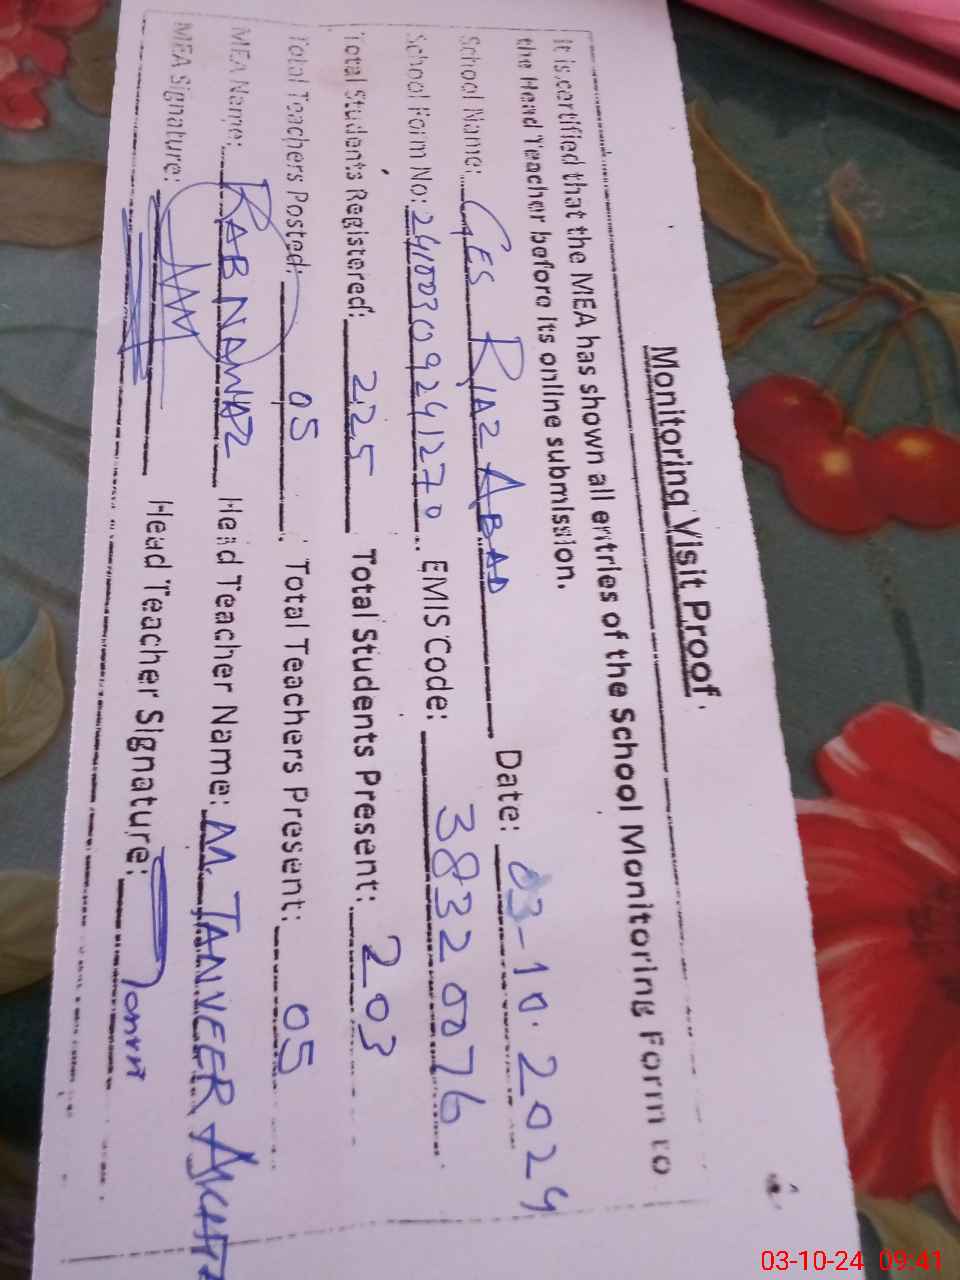 Monitoring Visit Proof.
It is certified that the MEA has shown all entries of the School Monitoring Form to
the Head Teacher before its online submission.
School Name: GES RIAZ ABAD Date: 03-10.2024
School Form No: 24100309241270 EMIS Code: 38320076
Total Students Registered: 225 Total Students Present: 203
Total Teachers Posted: 05 Total Teachers Present: 05
MEA Name: RAB NAWAZ Head Teacher Name: M. TANVEER
MEA Signature: Head Teacher Signature:
03-10-24 09:41